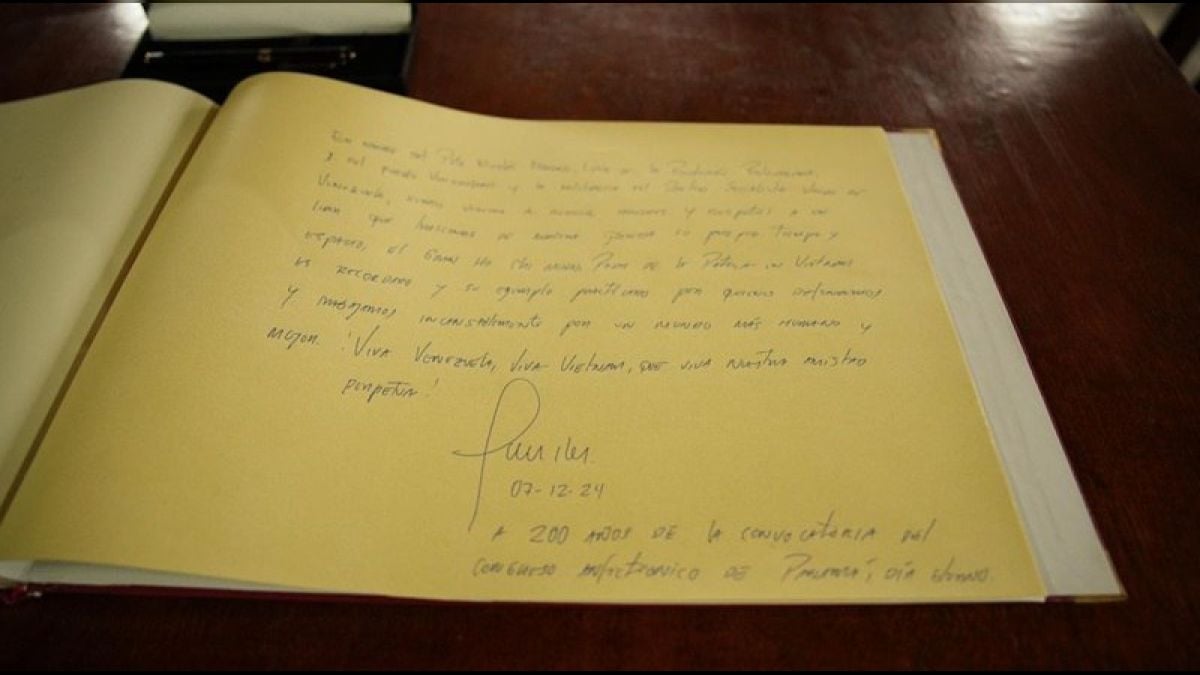 En nombre del Pdte Nicolás Maduro, Líder de la Revolución Bolivariana
y del pueblo Venezolano y la militancia del Partido Socialista Unido de
Venezuela, hemos venido a rendir honores y respetos a un
líder que trasciende de manera su propio tiempo y
espacio, el Gran Ho Chi Minh, Padre de la Patria en Vietnam
es recordado y su ejemplo por quienes defendemos
y trabajamos incansablemente por un mundo más humano y
mejor. ! Viva Venezuela, Viva Vietnam, que viva nuestra amistad
perpetua!
07-12-24
A 200 años de la convocatoria del
Congreso Anfictiónico de Panamá, día